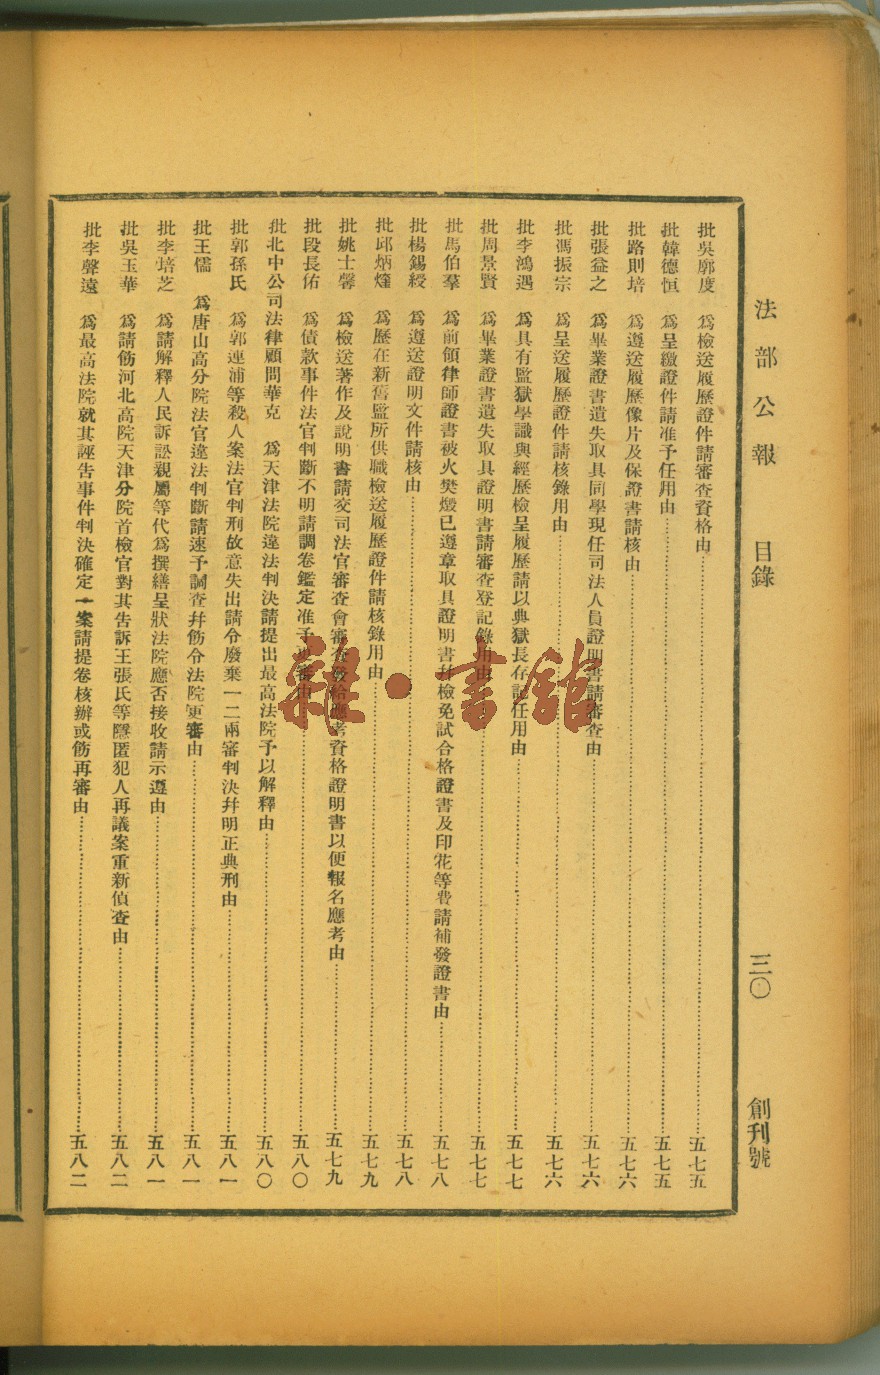 法部公報　目錄　三〇　創刊號
批吳廓度　爲檢送履歷證件請審查資格由……五七五
批韓德恒　爲呈繳證件請准予任用由……五七五
批路則培　爲遵送履歷像片及保證書請核由……五七六
批張益之　爲畢業證書遺失取具同學現任司法人員證明書請審查由……五七六
批馮振宗　爲呈送履歷證件請核錄用由……五七六
批李鴻遇　爲具有監獄學識與經歷檢呈履歷請以典獄長存記任用由……五七七
批周景賢　爲畢業證書遺失取具證明書請審查登記錄用由……五七七
批馬伯羣　爲前領律師證書被火焚燬已遵章取具證明書幷檢免試合格證書及印花等費請補發證書由……五七八
批楊錫綬　爲遵送證明文件請核由……五七八
批邱炳煃　爲歷在新舊監所供職檢送履歷證件請核錄用由……五七九
批姚士馨　爲檢送著作及說明書請交司法官審查會審查發給應考資格證明書以便報名應考由……五七九
批段長佑　爲債款事件法官判斷不明請調卷鑑定准予審由……五八〇
批北中公司法律顧問華克　爲天津法院違法判決請提出最高法院予以解釋由……五八〇
批郭孫氏　爲郭連浦等殺人案法官判刑故意失出請令廢棄一二兩審判決幷明正典刑由……五八一
批王儒　爲唐山高分院法官違法判斷請速予調查幷飭令法院更審由……五八一
批李培芝　爲請解釋人民訴訟親屬等代爲撰繕呈狀法院應否接收請示遵由……五八一
批吳玉華　爲請飭河北高院天津分院首檢官對其告訴王張氏等隱匿犯人再議案重新偵查由……五八二
批李聲遠　爲最高法院就其誣告事件判決確定一案請提卷核辦或飭再審由……五八二
雜·書館